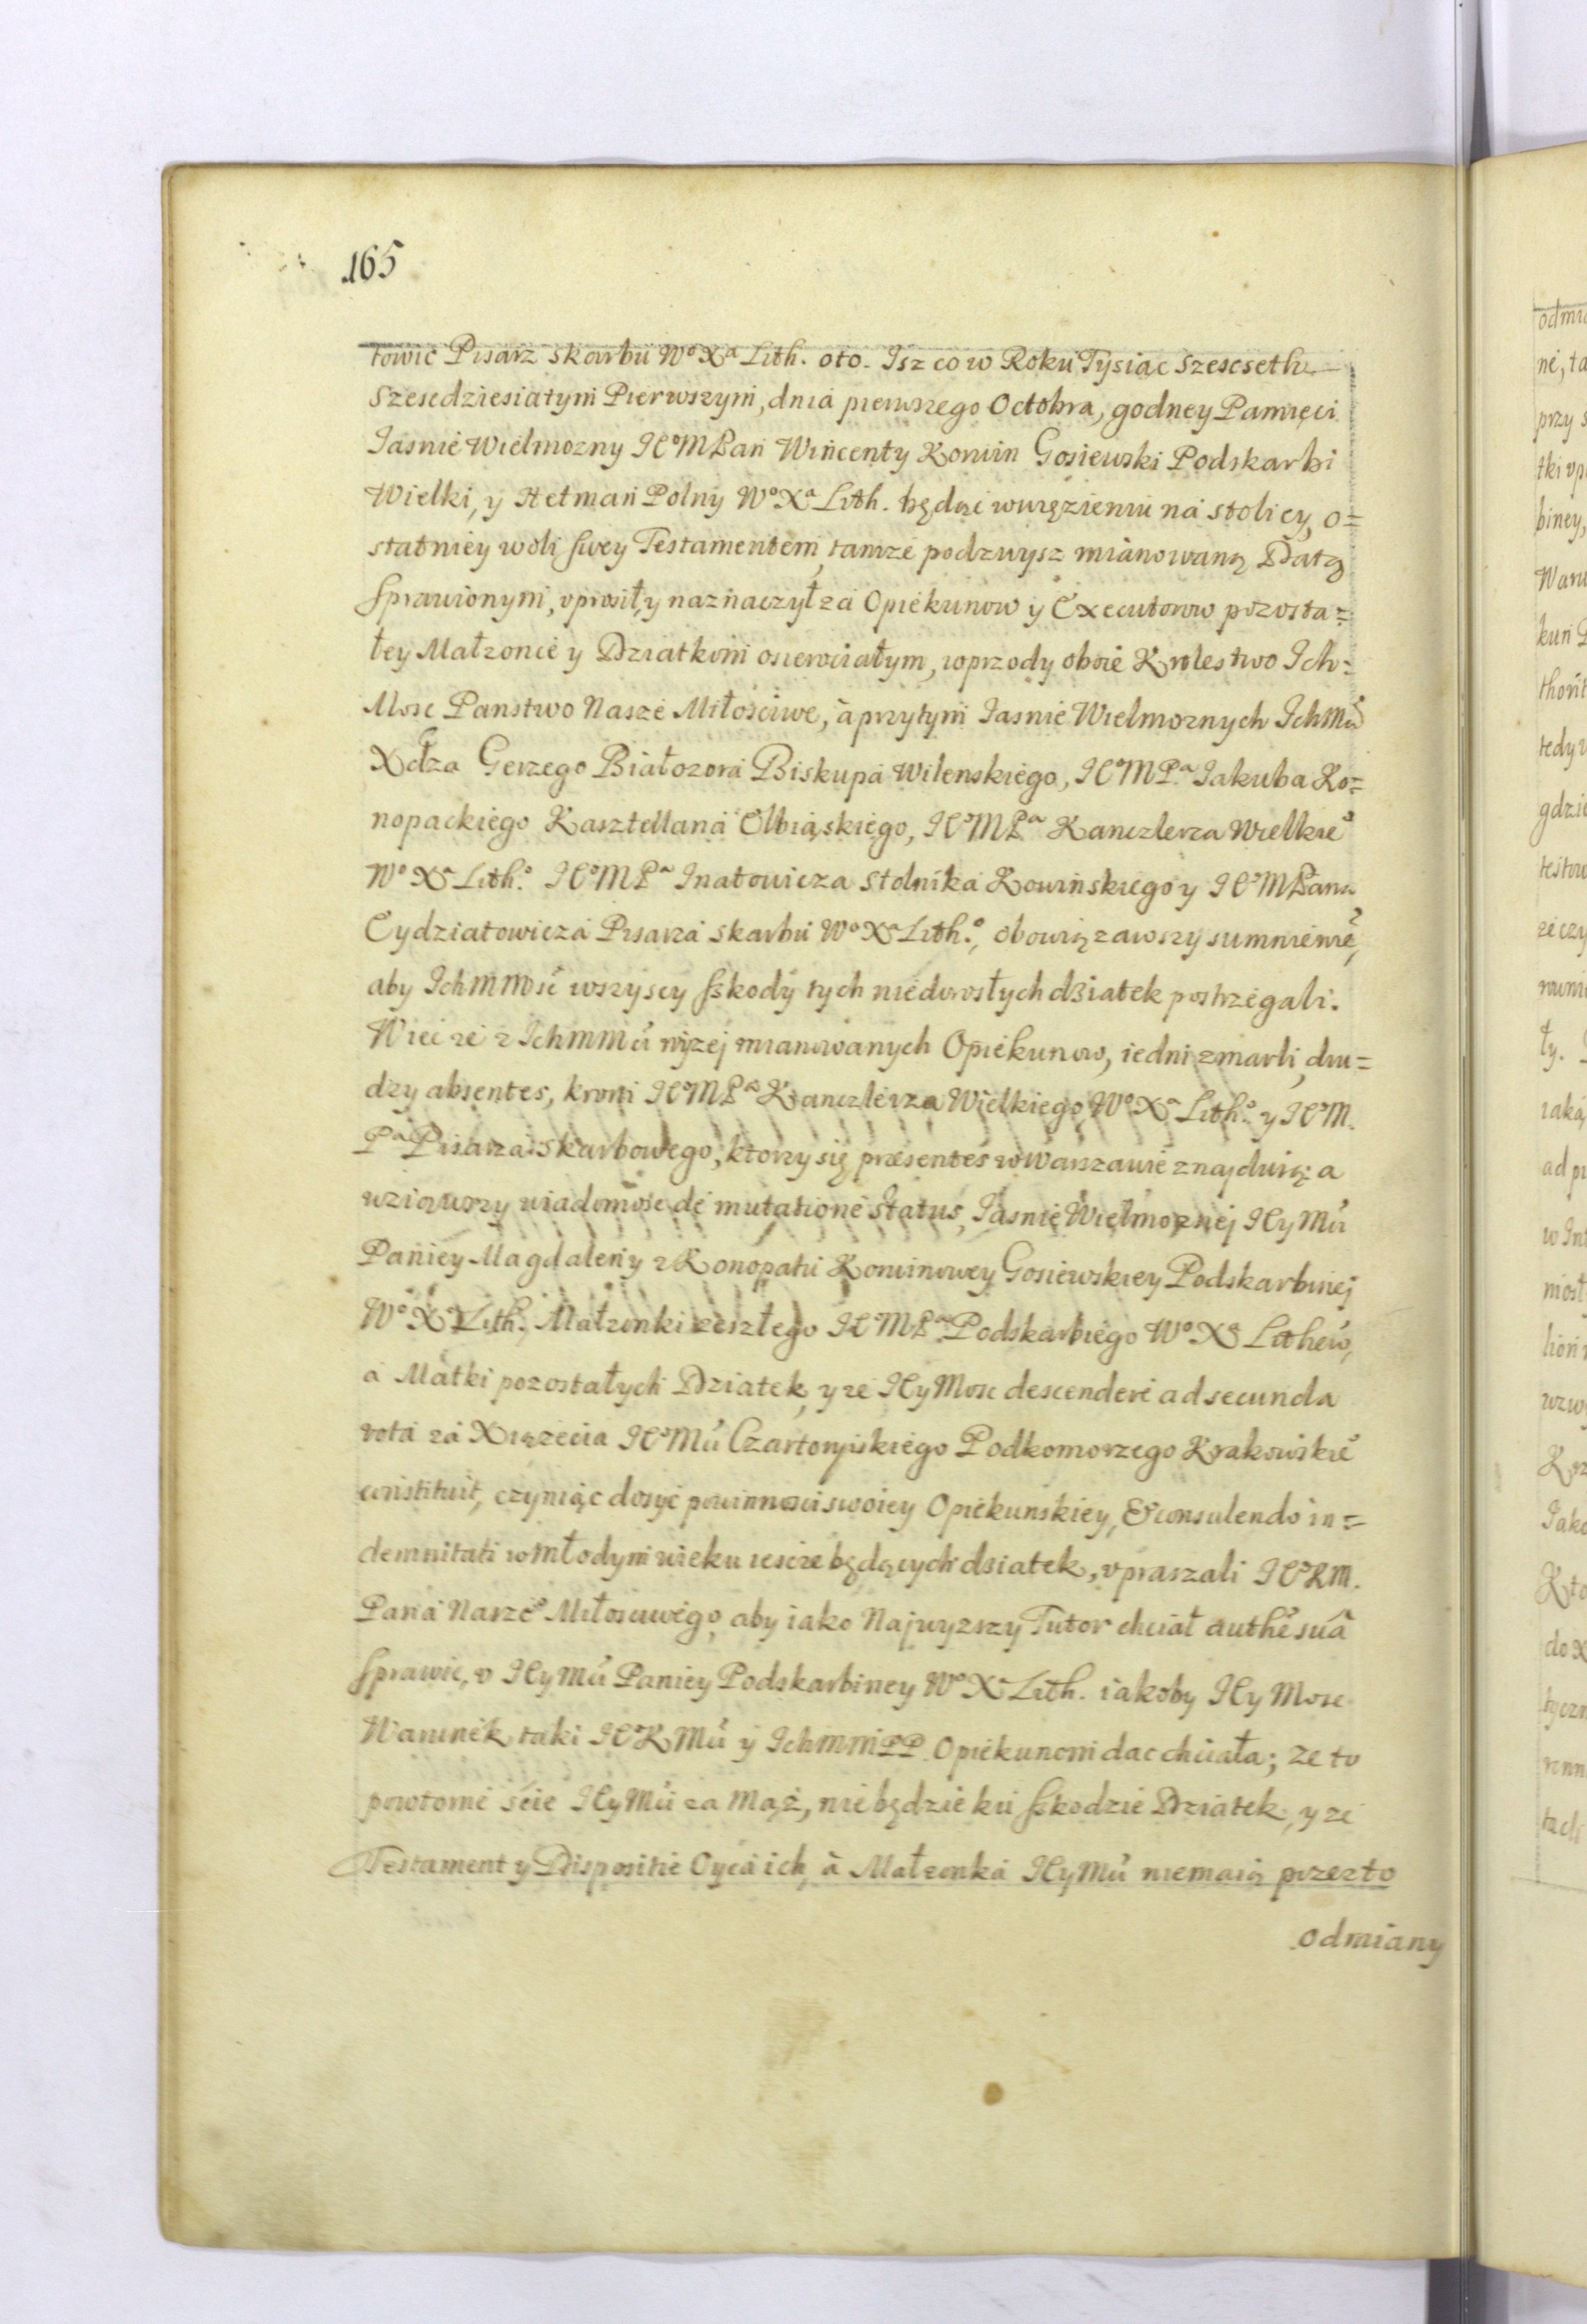 165
towic Pisarz skarbu Wº Xª Lith. oto. Isz co w Roku Tysiac szescseth
szescdziesiatym Pierwszym, dnia pierwszego Octobra, godney Pamięci
Iasnie Wielmozny IEºMPan Wincenty Korwin Gosiewski Podskarbi
Wielki, y Hetman Polny Wº Xª Lith. będąc w więzieniu na stolicy, o=
statniey woli swey Testamentem, tamze podzwysz mianowaną Datą
sprawionym, vprosił, y naznaczył za Opiekunow y Executorow pozosta=
łey Małzonce y Dziatkom osierociałym, wprzody oboie Krolestwo Ich=
Mosc Panstwo Nasze Miłosciwe, a przytym Iasnie Wielmoznych IchMci
Xdza Gerzego Białozora Biskupa Wilenskiego, IEºMPª Iakuba Ko=
nopackiego Kasztellana Elbiąskiego, IEºMPª Kanclerza Wielkieº
Wº Xª Lith.º IEºMPª Inatowicza stolnika Kowinskiego y IEºMPana
Cydziatowicza Pisarza skarbu Wº Xª Lith.º, obowiązawszy sumnienie,
aby Ichmmosc wszyscy szkody tych niedorosłych dziatek postrzegali.
Wiec ze z Ichmmci wyzej mianowanych Opiekunow, iedni zmarli, dru=
dzy absentes, krom IEºMPª Kanclerza Wielkiego Wº Xª Lith.º y IEºM.
Pª Pisarza skarbowego, ktorzy się præsentes w Warszawie znajduią: a
wziąwszy wiadomosc de mutatione status, Iasnie Wielmoznej IEyMci
Paniey Magdaleny z Konopatu Korwinowey Gosiewskiey Podskarbinej
Wº Xª Lith. Małzonki zeszłego IEºMPª Podskarbiego Wº Xª Litheº,
a Matki pozostałych Dziatek, y ze IEyMosc descendere ad secunda
vota za Xiązecia IEºMci Czartoryiskiego Podkomorzego Krakowskieº
constituit, czyniąc dosyc powinnosci swoiey Opiekunskiey, & consulendo in=
demnitati w młodym wieku iescze będących dziatek, vpraszali IEºKM.
Pana Naszeº Miłosciwego, aby iako Najwyzszy Tutor chciał authe suâ
sprawic, v IEyMci Paniey Podskarbiney Wº Xª Lith. iakoby IEyMosc
Warunek taki IEºKMci y IchmmPP Opiekunom dac chciała; ze to
powtorne scie IEyMci za Mąż, nie będzie ku szkodzie Dziatek, y ze
Testament y Dispositie Oyca ich, a Małzonka IEyMci niemaią przezto
odmiany